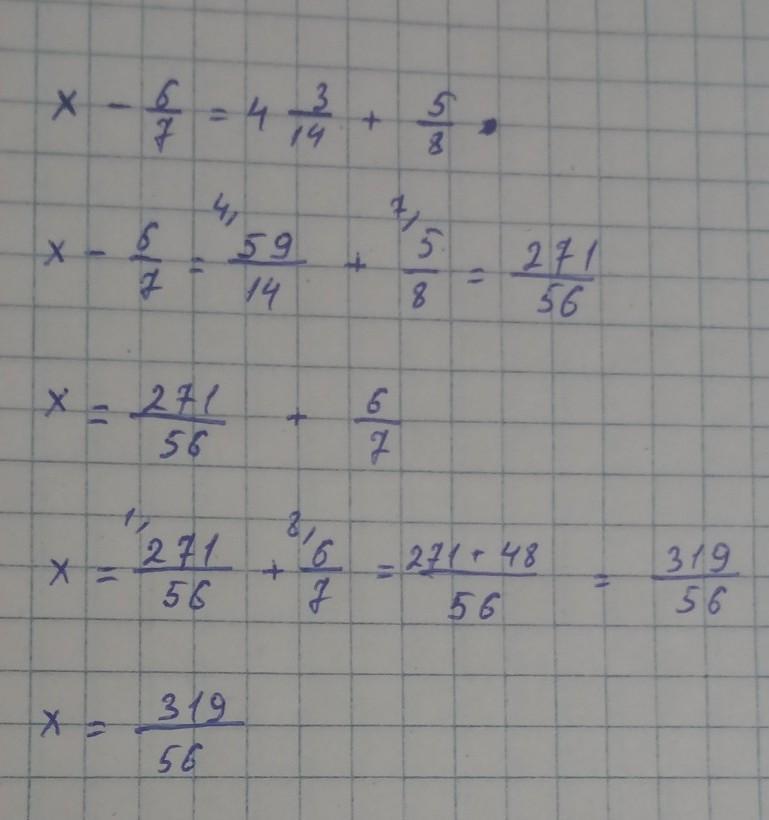 x - 6/7 = 4 3/14 + 5/8
x - 6/7 = 4, 59/14 + 7, 5/8 = 271/56
x = 271/56 + 6/7
x = 1, 271/56 + 8, 6/7 = 271 + 48/56 = 319/56
x = 319/56